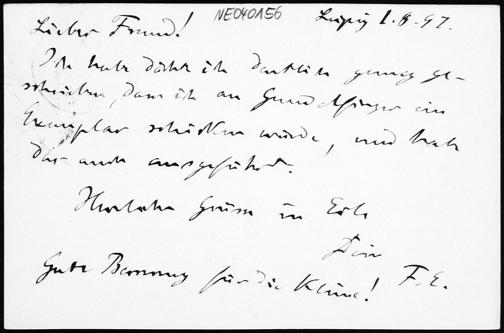 NE040156
Leipzig 1.9.97.
Lieber Freund!
Ich habe dächt ich deutlich genug ge-
schrieben, dass ich an Gundelfinger ein
Exemplar schicken würde, und habe
das auch ausgeführt.
Herzliche Grüsse in Eile
Dein
F. E.
Gute Besserung für die Kleine!